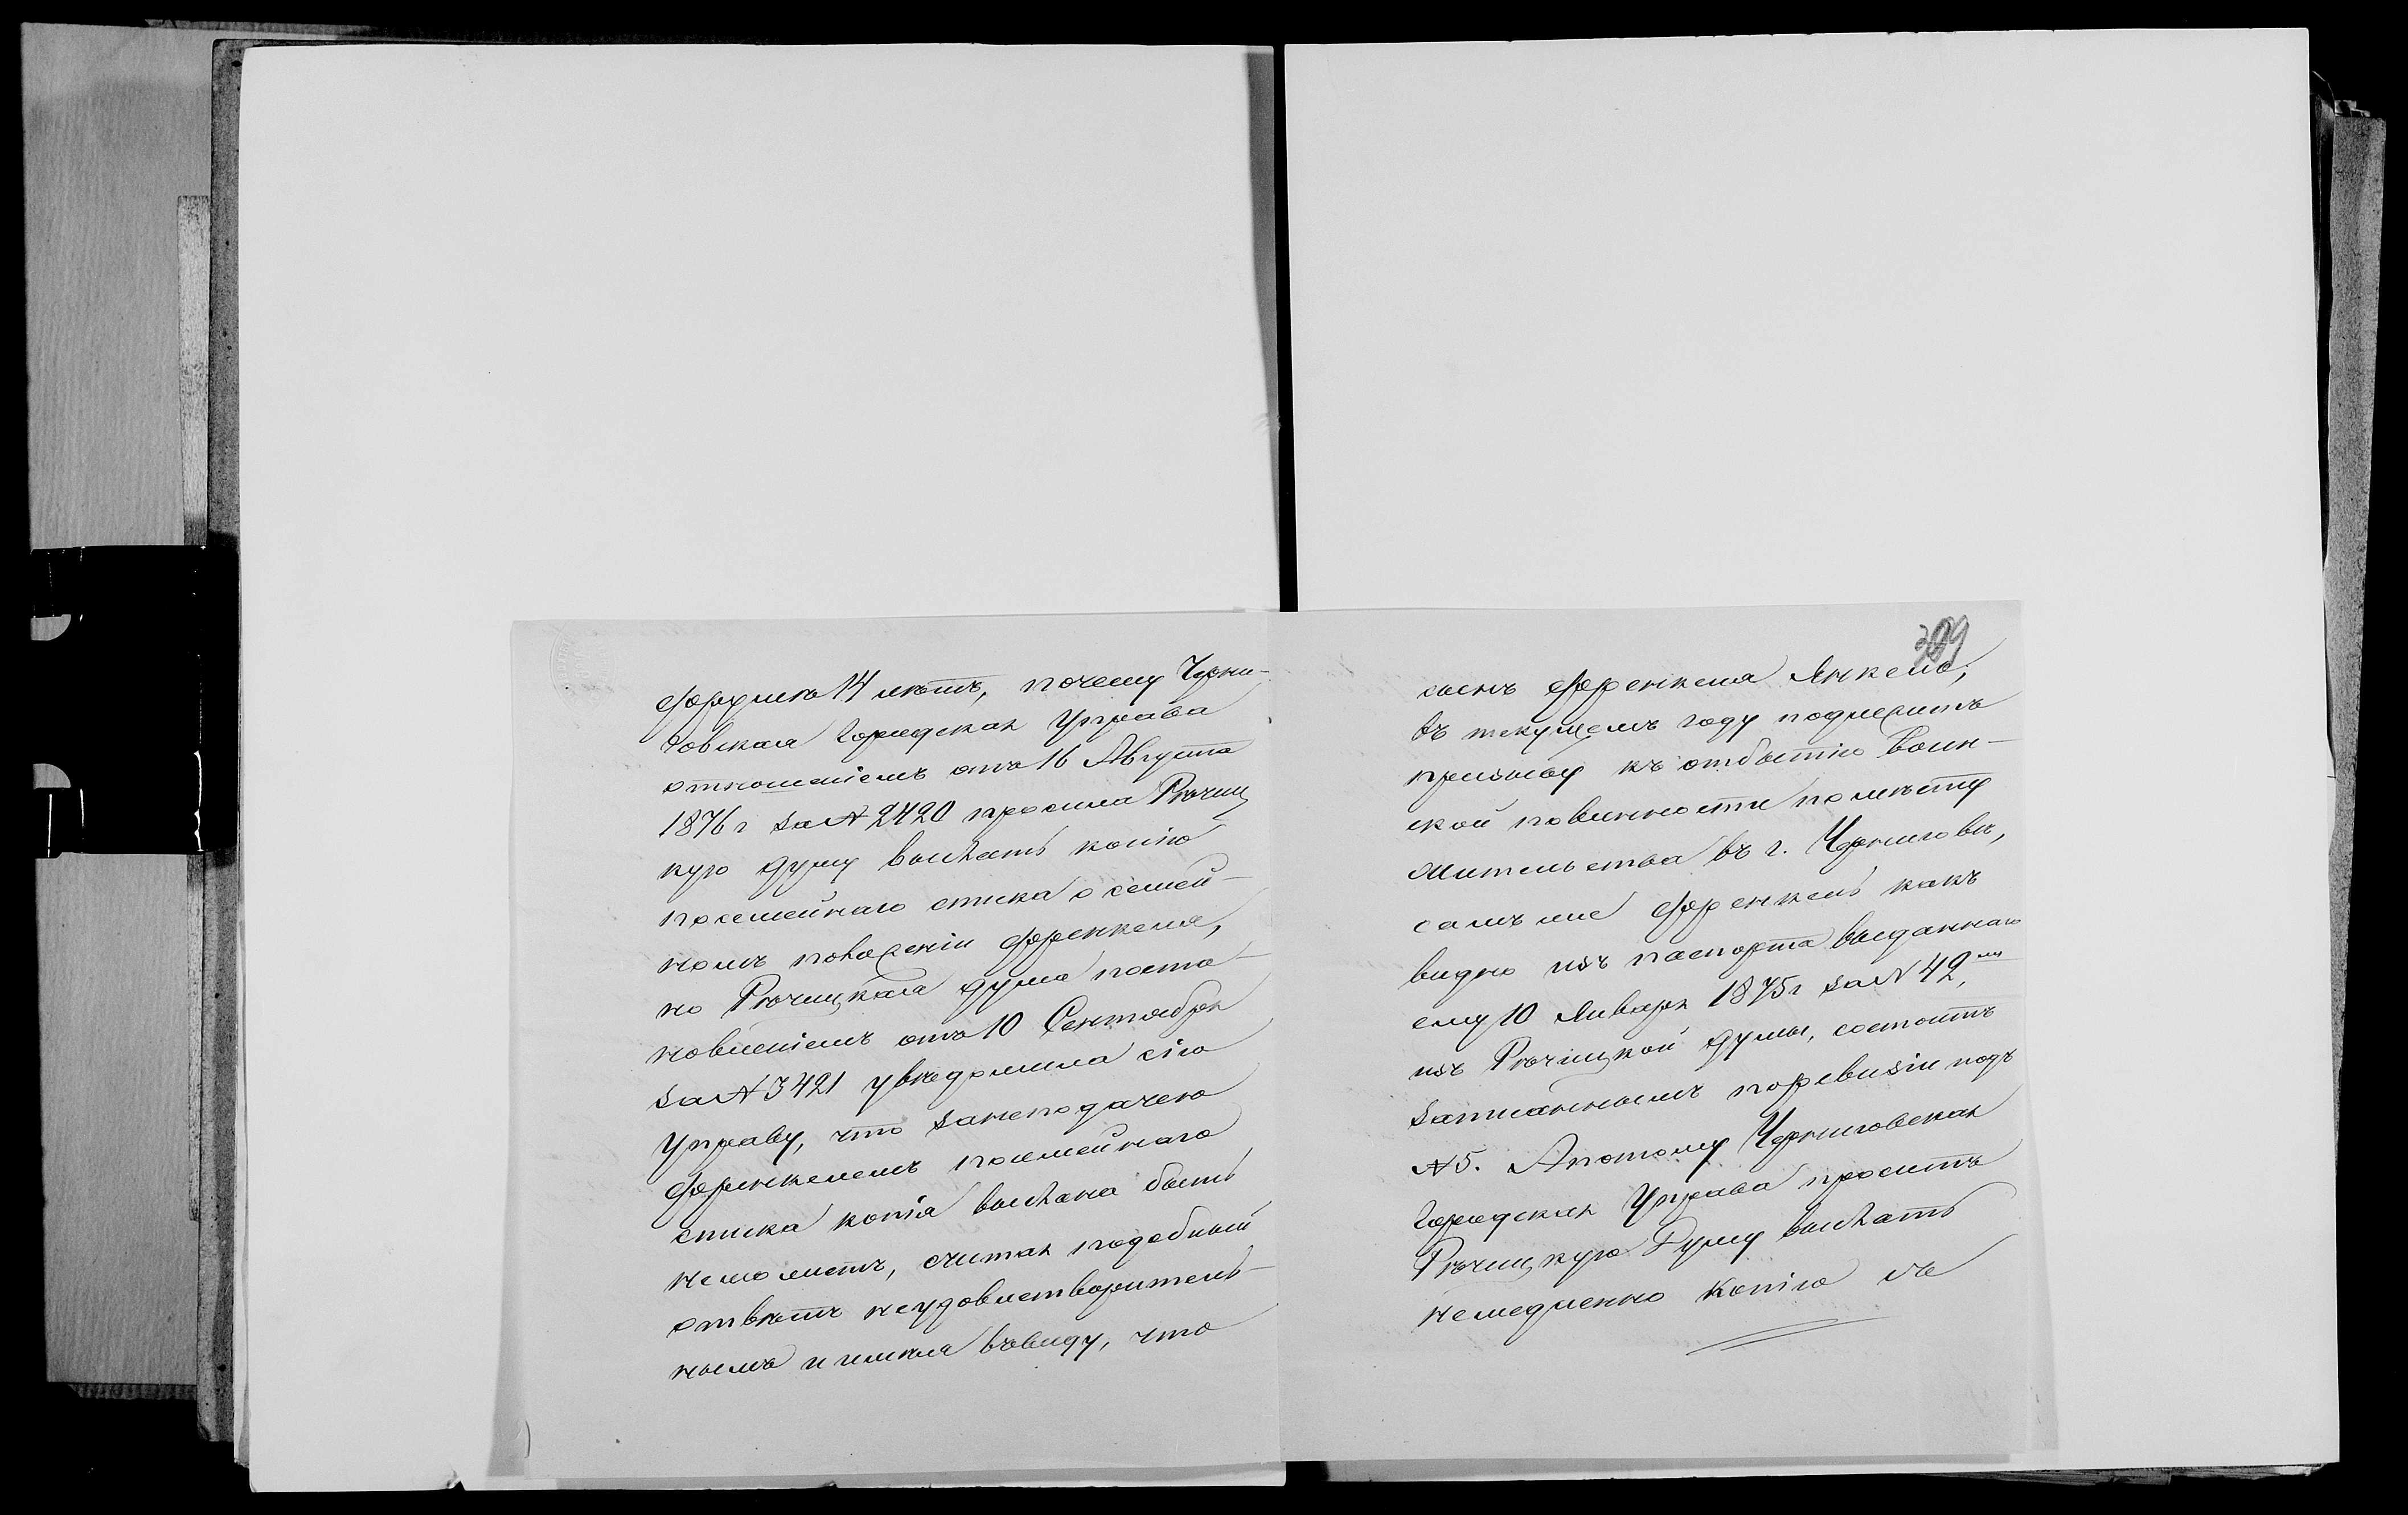 Фрумѣ 14 лѣтъ, почему Черни-
говская Городская Управа
отношеніемъ отъ 16 Августа
1876 г за № 2420 просила Рѣчиц
кую думу выслать копію
посемейнаго списка о семей-
номъ положеніи Френкеля,
но Рѣчицкая дума поста-
новленіемъ отъ 10 Сентября
за № 3421 увѣдомила сію
Управу, что за неподачею
Френкелемъ посемейнаго
списка копія выслана быть
не можетъ, считая подобный
отвѣтъ неудовлетворитель-
нымъ и имѣя въ виду, что
309
сынъ Френкеля Янкель,
въ текущемъ году подлежитъ
призыву къ отбытію Воин-
ской повинности по мѣсту
жительства въ г. Черниговѣ,
самъ же Френкель какъ
видно изъ паспорта выданнаго
ему 10 Января 1875 г за № 42,
изъ Рѣчицкой думы, состоитъ
записаннымъ по ревизіи подъ
№ 5. А потому Черниговская
Городская Управа проситъ
Рѣчицкую Думу выслать
немедленно копію съ